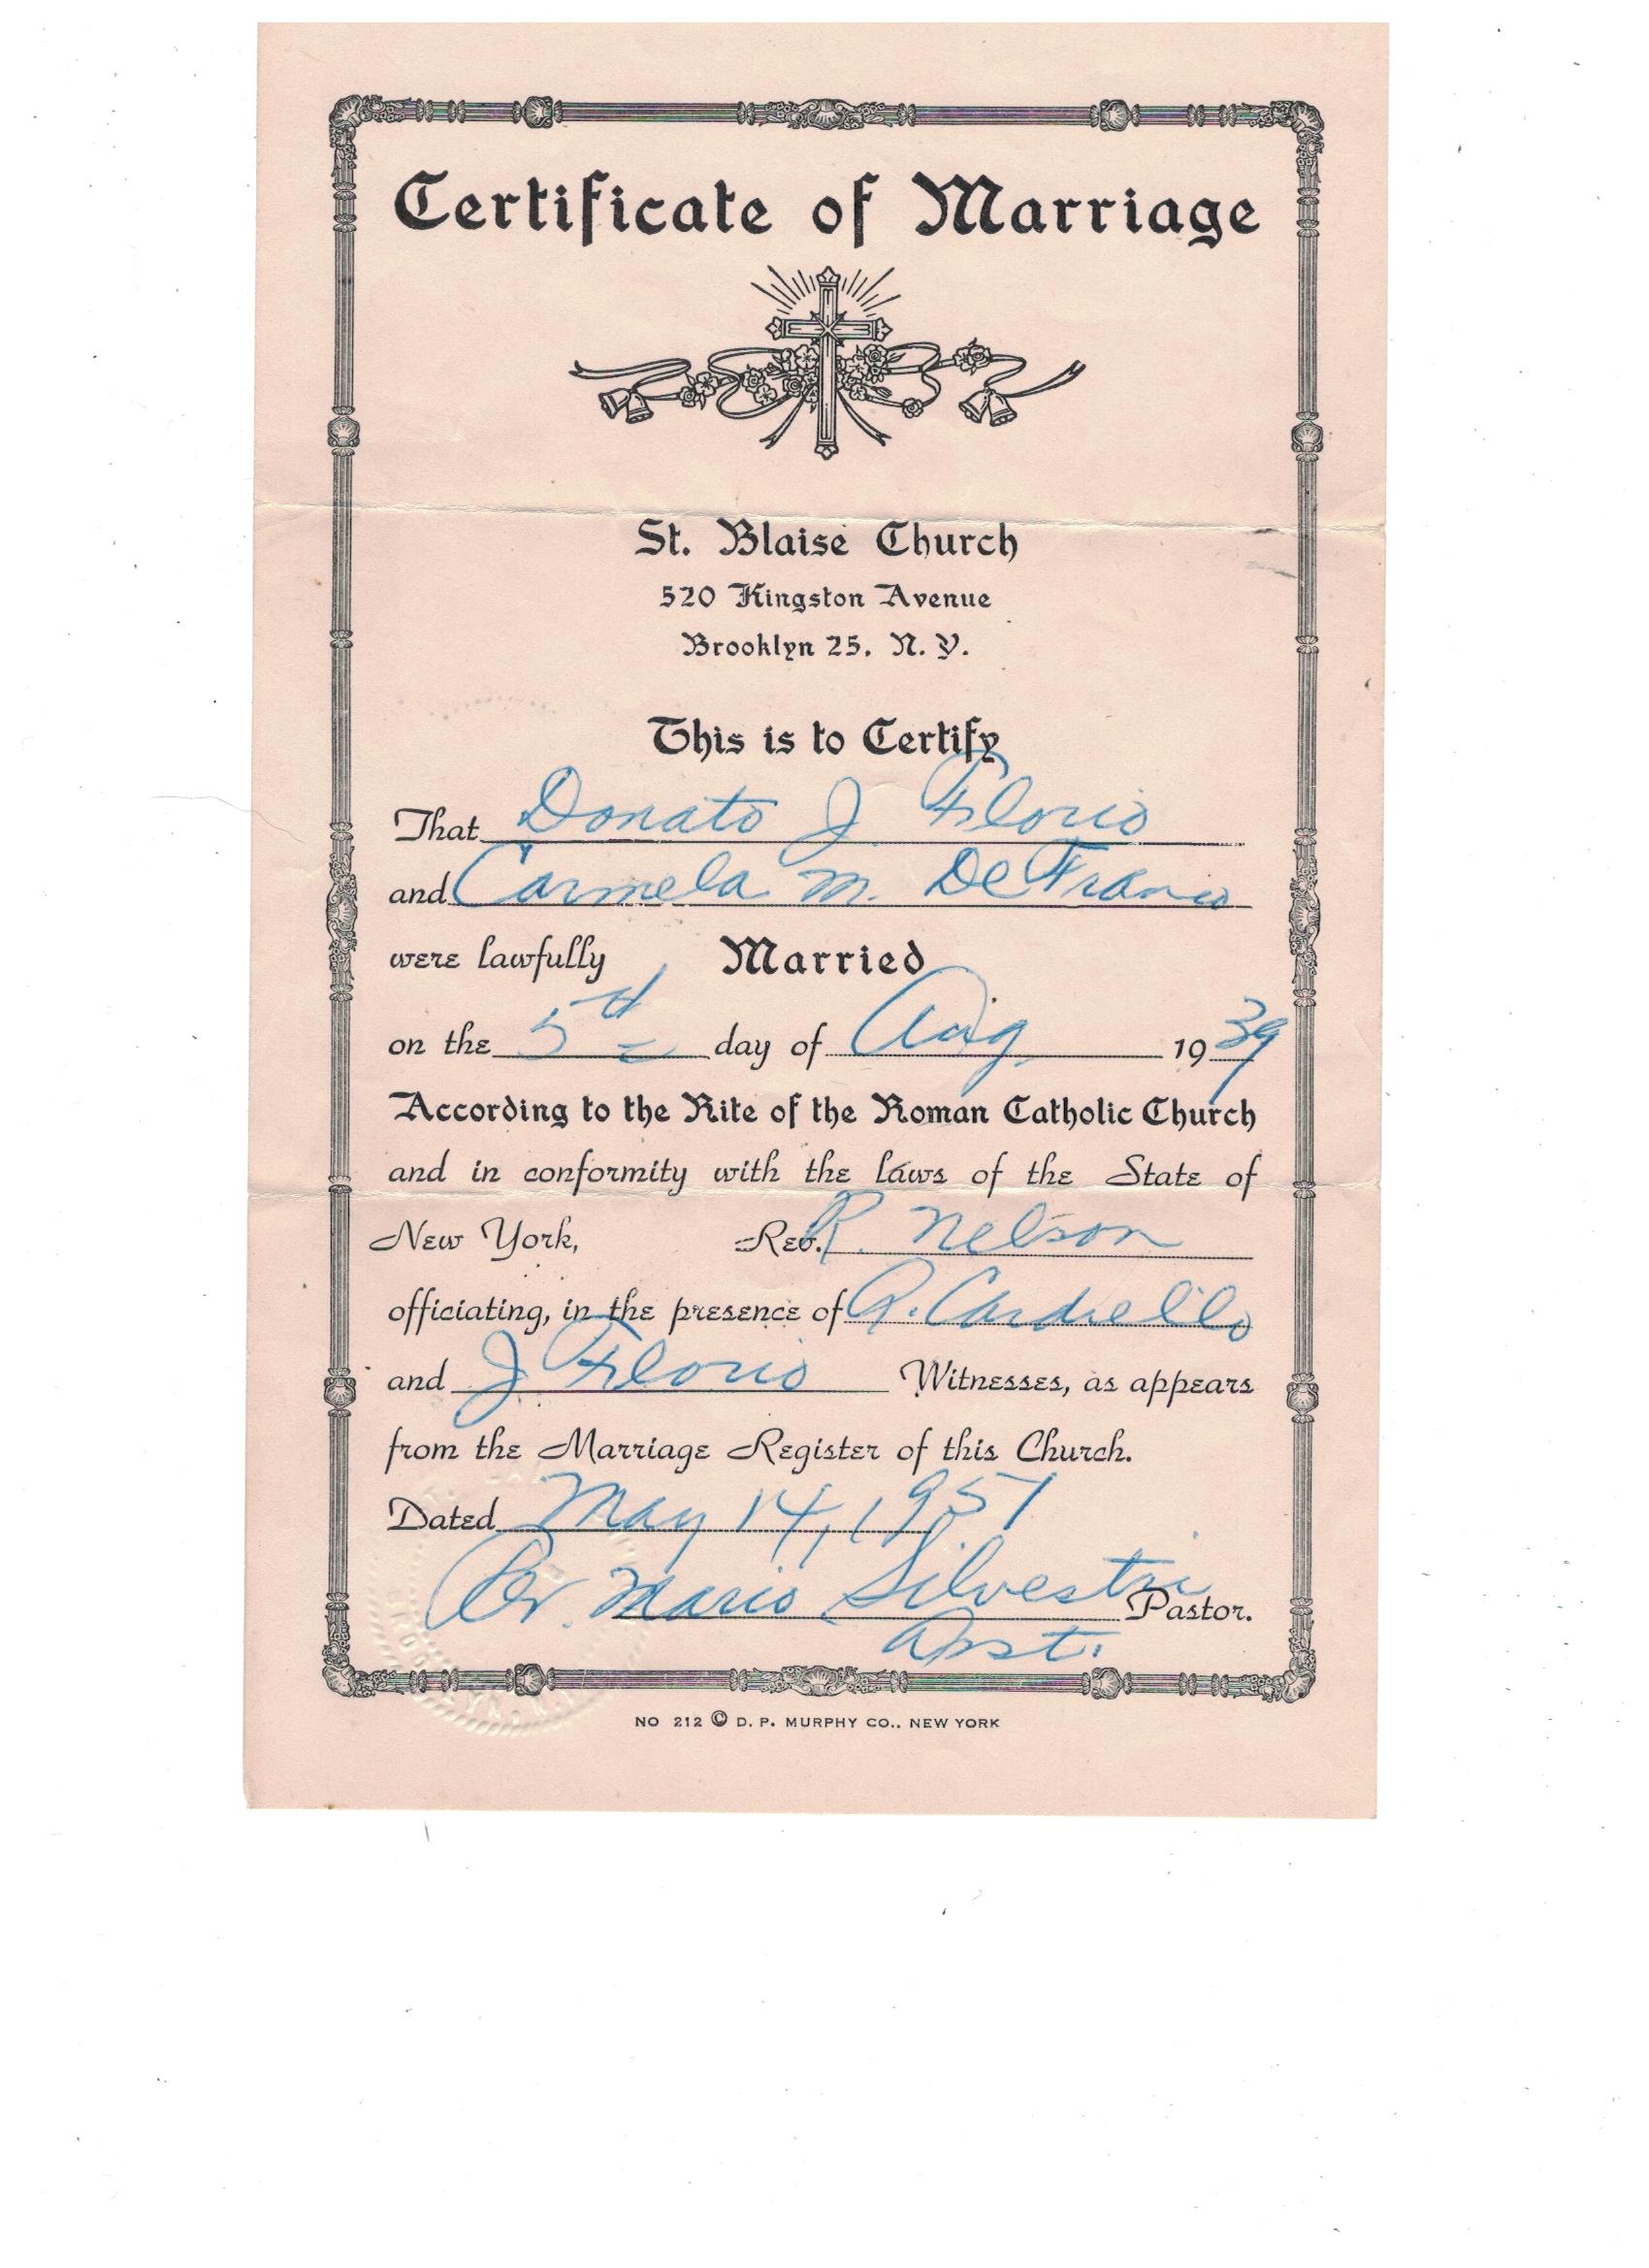 Certificate of Marriage
St. Blaise Church
520 Kingston Avenue
Brooklyn 25, N. Y.
This is to Certify
That Donato J Florio
and Carmela M. DeFranco
were lawfully Married
on the 5th day of Aug 1939
According to the Rite of the Roman Catholic Church
and in conformity with the laws of the State of
New York, Rev. R. Nelson
officiating, in the presence of R. Cardiello
and J Florio Witnesses, as appears
from the Marriage Register of this Church.
Dated May 14, 1957
Mario Silvestri Pastor.
Asst.
NO 212 © D. P. MURPHY CO., NEW YORK